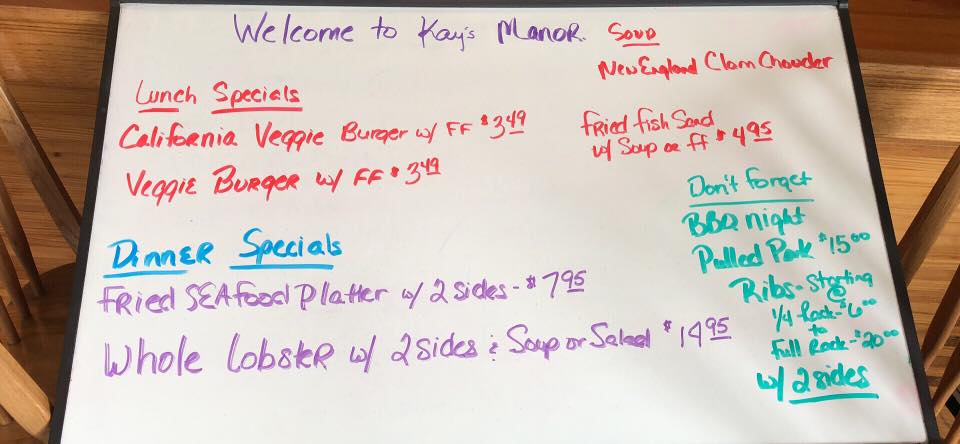 Welcome to Kay's Manor.
Soup
New England Clam Chowder
Lunch Specials
California Veggie Burger w/ FF $3.49
Veggie Burger w/ FF $3.49
Fried fish Sand
w/ Soup or ff $4.95
Dinner Specials
Fried SEAfood Platter w/ 2 sides - $7.95
Whole Lobster w/ 2 sides & Soup or Salad $14.95
Don't forget
BBQ night
Pulled Pork $15.00
Ribs - Starting
@
1/4 Rack - $6.00
to
Full Rack - $20.00
w/ 2 sides